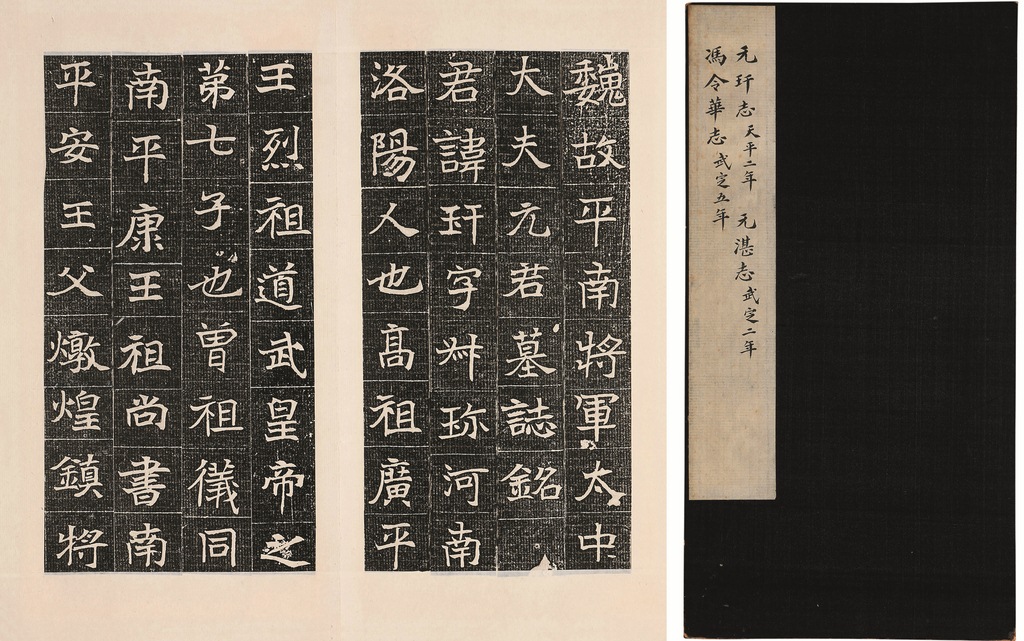 魏故平南將軍太中
大夫元君墓誌銘
君諱玕字叔珍河南
洛陽人也高祖廣平
王烈祖道武皇帝之
第七子也曾祖儀同
南平康王祖尚書南
平安王父燉煌鎮將
元玕志天平二年 元湛志武定二年
馮令華志武定五年